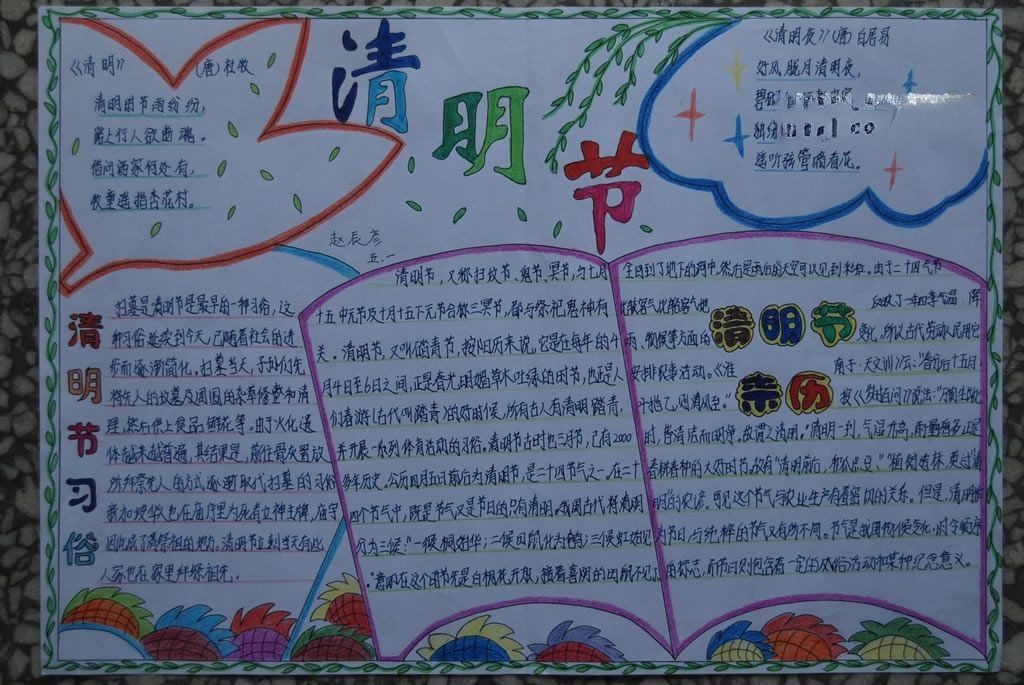 清明节
《清明》 (唐)杜牧
清明时节雨纷纷,
路上行人欲断魂。
借问酒家何处有,
牧童遥指杏花村。
《清明夜》(唐)白居易
好风胧月清明夜,
碧砌
独绕
遥听弦管暗看花。
赵辰彦
五.一
清明节习俗
扫墓是清明节是最早的一种习俗,这
种习俗延续到今天,已随着社会的进
步而逐渐简化。扫墓当天,子孙们先
将先人的坟墓及周围的杂草修整和清
理,然后供上食品鲜花等。由于火化遗
体越来越普遍,其结果是,前往骨灰置放
所拜祭先人的方式逐渐取代扫墓的习俗
新加坡华人也在庙宇里为死者立神主牌,庙宇
因此成了清祭祖的地方。清明节立刻当天有些
人家也在家里拜祭祖先。
清明节,又称扫坟节、鬼节、冥节,与七月
十五中元节及十月十五下元节合称三冥节,都与祭祀鬼神有
关。清明节,又叫踏青节,按阳历来说,它是在每年的4
月4日至6日之间,正是春光明媚草木吐绿的时节,也正是人
们春游(古代叫踏青)的好时候,所有古人有清明踏青,
并开展一系列体育活动的习俗。清明节古时也三月节,已有2000
多年历史。公历四月五日前后为清明节,是二十四节气之一。在二十
四个节气中,既是节气又是节日的只有清明。我国古代将清明
分为三候:"一候桐始华;二候田鼠化为鹌;三候虹始见
。"意即在这个时节先是白桐花开放,接着喜阴的田鼠不见了
全回到了地下的洞中,然后是雨后的天空可以见到彩虹。由于二十四节气
比较客气比较客气地 反映了一年四季气温、降
雨、物候等方面的 变化,所以古代劳动人民用它
安排农事活动。《淮
南子·天文训》云:"春分后十五日
斗指乙,则清风至。"
按《岁时百问》说法:"万物生长此
清明节
亲历
时,皆清洁而明净。故谓之清明。"清明一到,气温升高,雨量增多,正是
春耕春种的大好时节。故有"清明前后,种瓜点豆""植树造林,莫过清
明"的农谚。可见这个节气与农业生产有着密切的关系。但是,清明作
为节日,与纯粹的节气又有所不同。节气是我国物候变化,时令顺序
的标志,而节日则包含着一定的风俗活动和某种纪念意义。